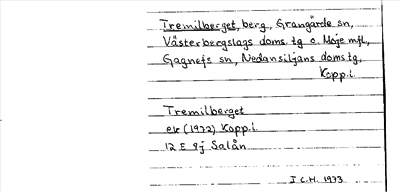 Tremilberget, berg, Grangärde sn,
Västerbergslags doms. tg o. Moje mfl,
Gagnefs sn, Nedansiljans doms tg,
Kopp.i.
Tremilberget
ek (1972) Kopp.i.
12 E 9j Salån
J C.H. 1973